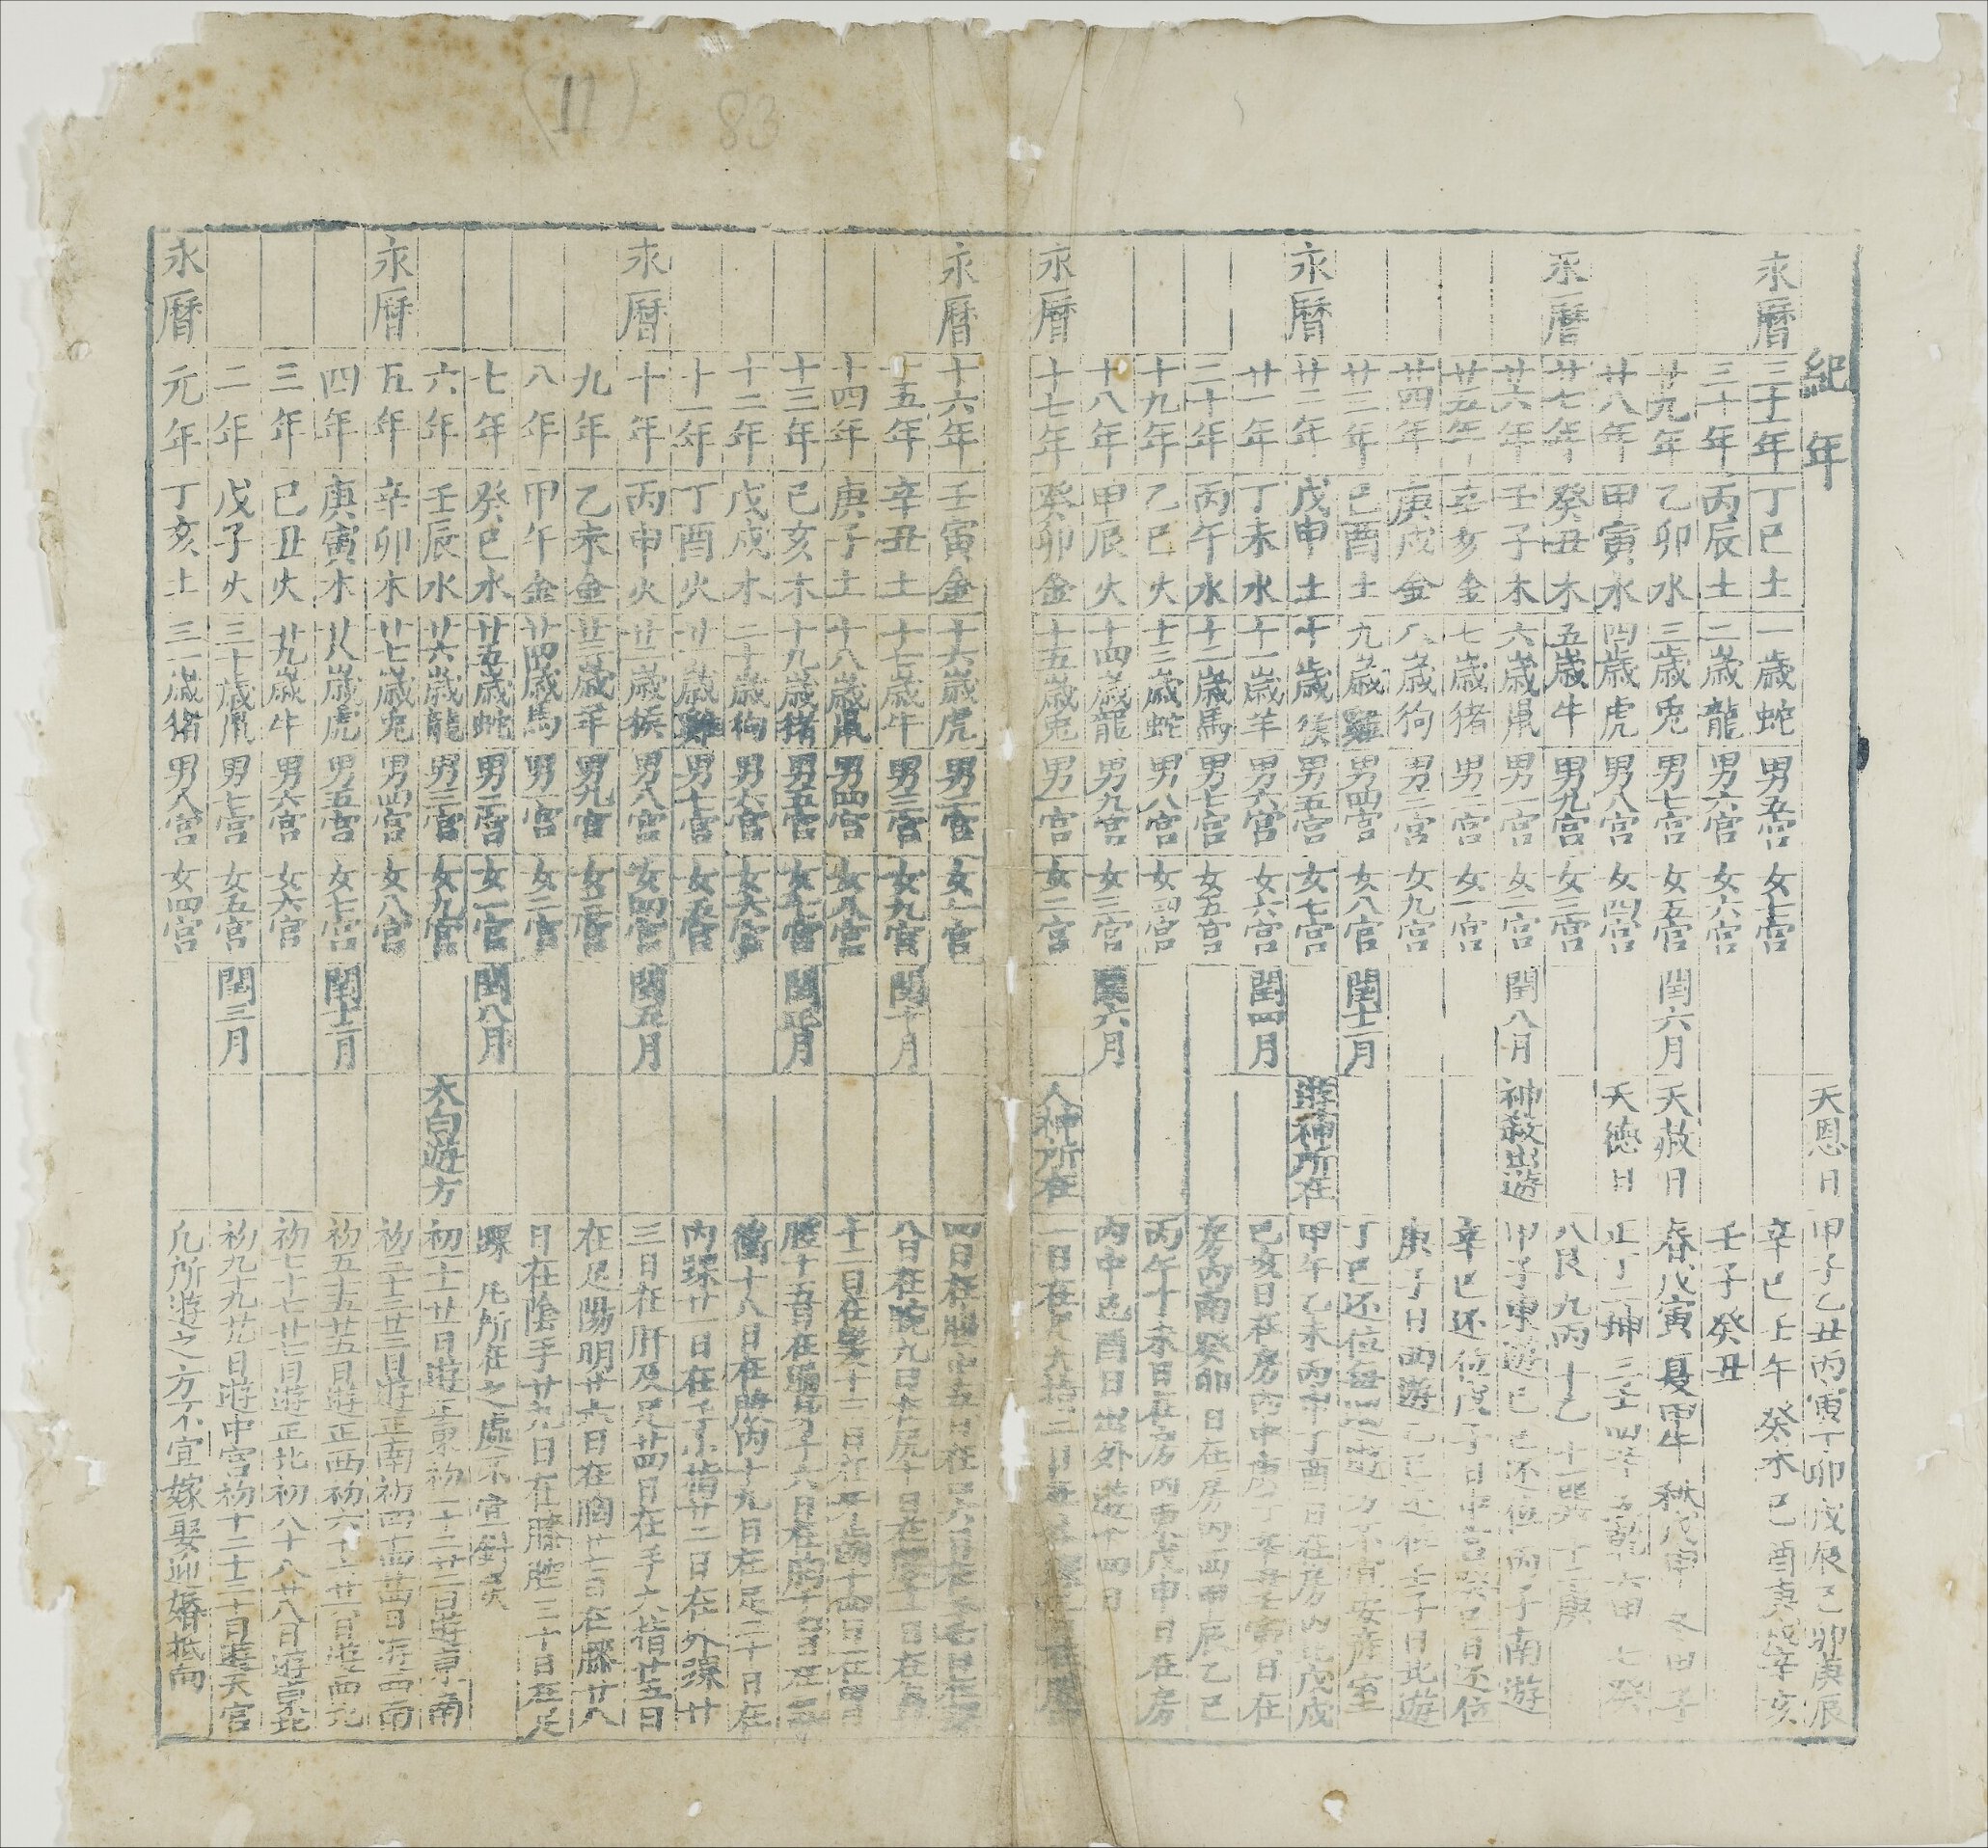 (11) 83
紀年 天恩日 甲子乙丑丙寅丁卯戊辰己卯庚辰
永曆三十一年 丁巳土 一歲蛇 男五宮 女七宮 辛巳壬午癸未己酉庚戌辛亥
三十年 丙辰土 二歲龍 男六宮 女六宮 壬子癸丑
廿九年 乙卯水 三歲兎 男七宮 女五宮 閏六月 天赦日 春戊寅 夏甲午 秋戊申 冬甲子
廿八年 甲寅水 四歲虎 男八宮 女四宮 天德日 正丁二坤三壬四辛五乾六甲七癸
永曆廿七年 癸丑木 五歲牛 男九宮 女三宮 八艮九丙十乙十一巽十二庚
廿六年 壬子木 六歲鼠 男一宮 女二宮 閏八月 神殺出遊 甲子東遊己巳还位丙子南遊
廿五年 辛亥金 七歲猪 男二宮 女一宮 辛巳还位戊子日中宮癸巳日还位
廿四年 庚戌金 八歲狗 男三宮 女九宮 庚子日西遊乙巳还位壬子日北遊
廿三年 己酉土 九歲雞 男四宮 女八宮 閏十二月 丁巳还位每遊方不宜安產室
永曆廿二年 戊申土 十歲猴 男五宮 女七宮 遊神所在 甲午乙未丙申丁酉日在房內北戊戌
廿一年 丁未水 十一歲羊 男六宮 女六宮 閏四月 己亥日在房內中庚子辛丑壬寅日在
二十年 丙午水 十二歲馬 男七宮 女五宮 房內南癸卯日在房內西甲辰乙巳
十九年 乙巳火 十三歲蛇 男八宮 女四宮 丙午丁未日在房內東戊申日在房
十八年 甲辰火 十四歲龍 男九宮 女三宮 閏六月 內中己酉日出外遊十四日
永曆十七年 癸卯金 十五歲兎 男一宮 女二宮 人神所在 一日在足大指二日在
永曆十六年 壬寅金 十六歲虎 男二宮 女一宮 四日在腰中五日在口六日在手七日在
十五年 辛丑土 十七歲牛 男三宮 女九宮 閏十月 八日在腕九日在尻十日在腰十一日在
十四年 庚子土 十八歲鼠 男四宮 女八宮 十二日在髮十三日在牙齒十四日在胃
十三年 己亥木 十九歲猪 男五宮 女七宮 閏正月 脘十五日在遍身十六日在胸十七日在氣
十二年 戊戌木 二十歲狗 男六宮 女六宮 衝十八日在股內十九日在足二十日在
十一年 丁酉火 廿一歲雞 男七宮 女五宮 內踝廿一日在手小指廿二日在外踝廿
永曆十年 丙申火 廿二歲猴 男八宮 女四宮 閏五月 三日在肝及足廿四日在手六指廿五日
九年 乙未金 廿三歲羊 男九宮 女三宮 在足陽明廿六日在胸廿七日在膝廿八
八年 甲午金 廿四歲馬 男一宮 女二宮 日在陰手廿九日在膝脛三十日在足
七年 癸巳水 廿五歲蛇 男二宮 女一宮 閏八月 踝 凡所在之處不宜針灸
六年 壬辰水 廿六歲龍 男三宮 女九宮 太白遊方 初一十一廿一日遊正東初二十二廿二日遊東南
永曆五年 辛卯木 廿七歲兎 男四宮 女八宮 初三十三廿三日遊正南初四十四廿四日遊西南
四年 庚寅木 廿八歲虎 男五宮 女七宮 閏十一月 初五十五廿五日遊正西初六十六廿六日遊西北
三年 己丑火 廿九歲牛 男六宮 女六宮 初七十七廿七日遊正北初八十八廿八日遊東北
二年 戊子火 三十歲鼠 男七宮 女五宮 閏三月 初九十九廿九日遊中宮初十二十三十日遊天宮
永曆元年 丁亥土 三一歲猪 男八宮 女四宮 凡所遊之方不宜嫁娶迎婚抵向